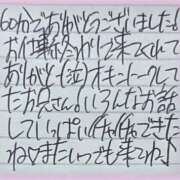 60分でおわがとうございました!
お仕事おわりに来てくれて
ありがと(泣)オモシロトークして
たかさん!いろんなお話
していっぱいイチャイチャできた
ね♡またいつでも来てね♪